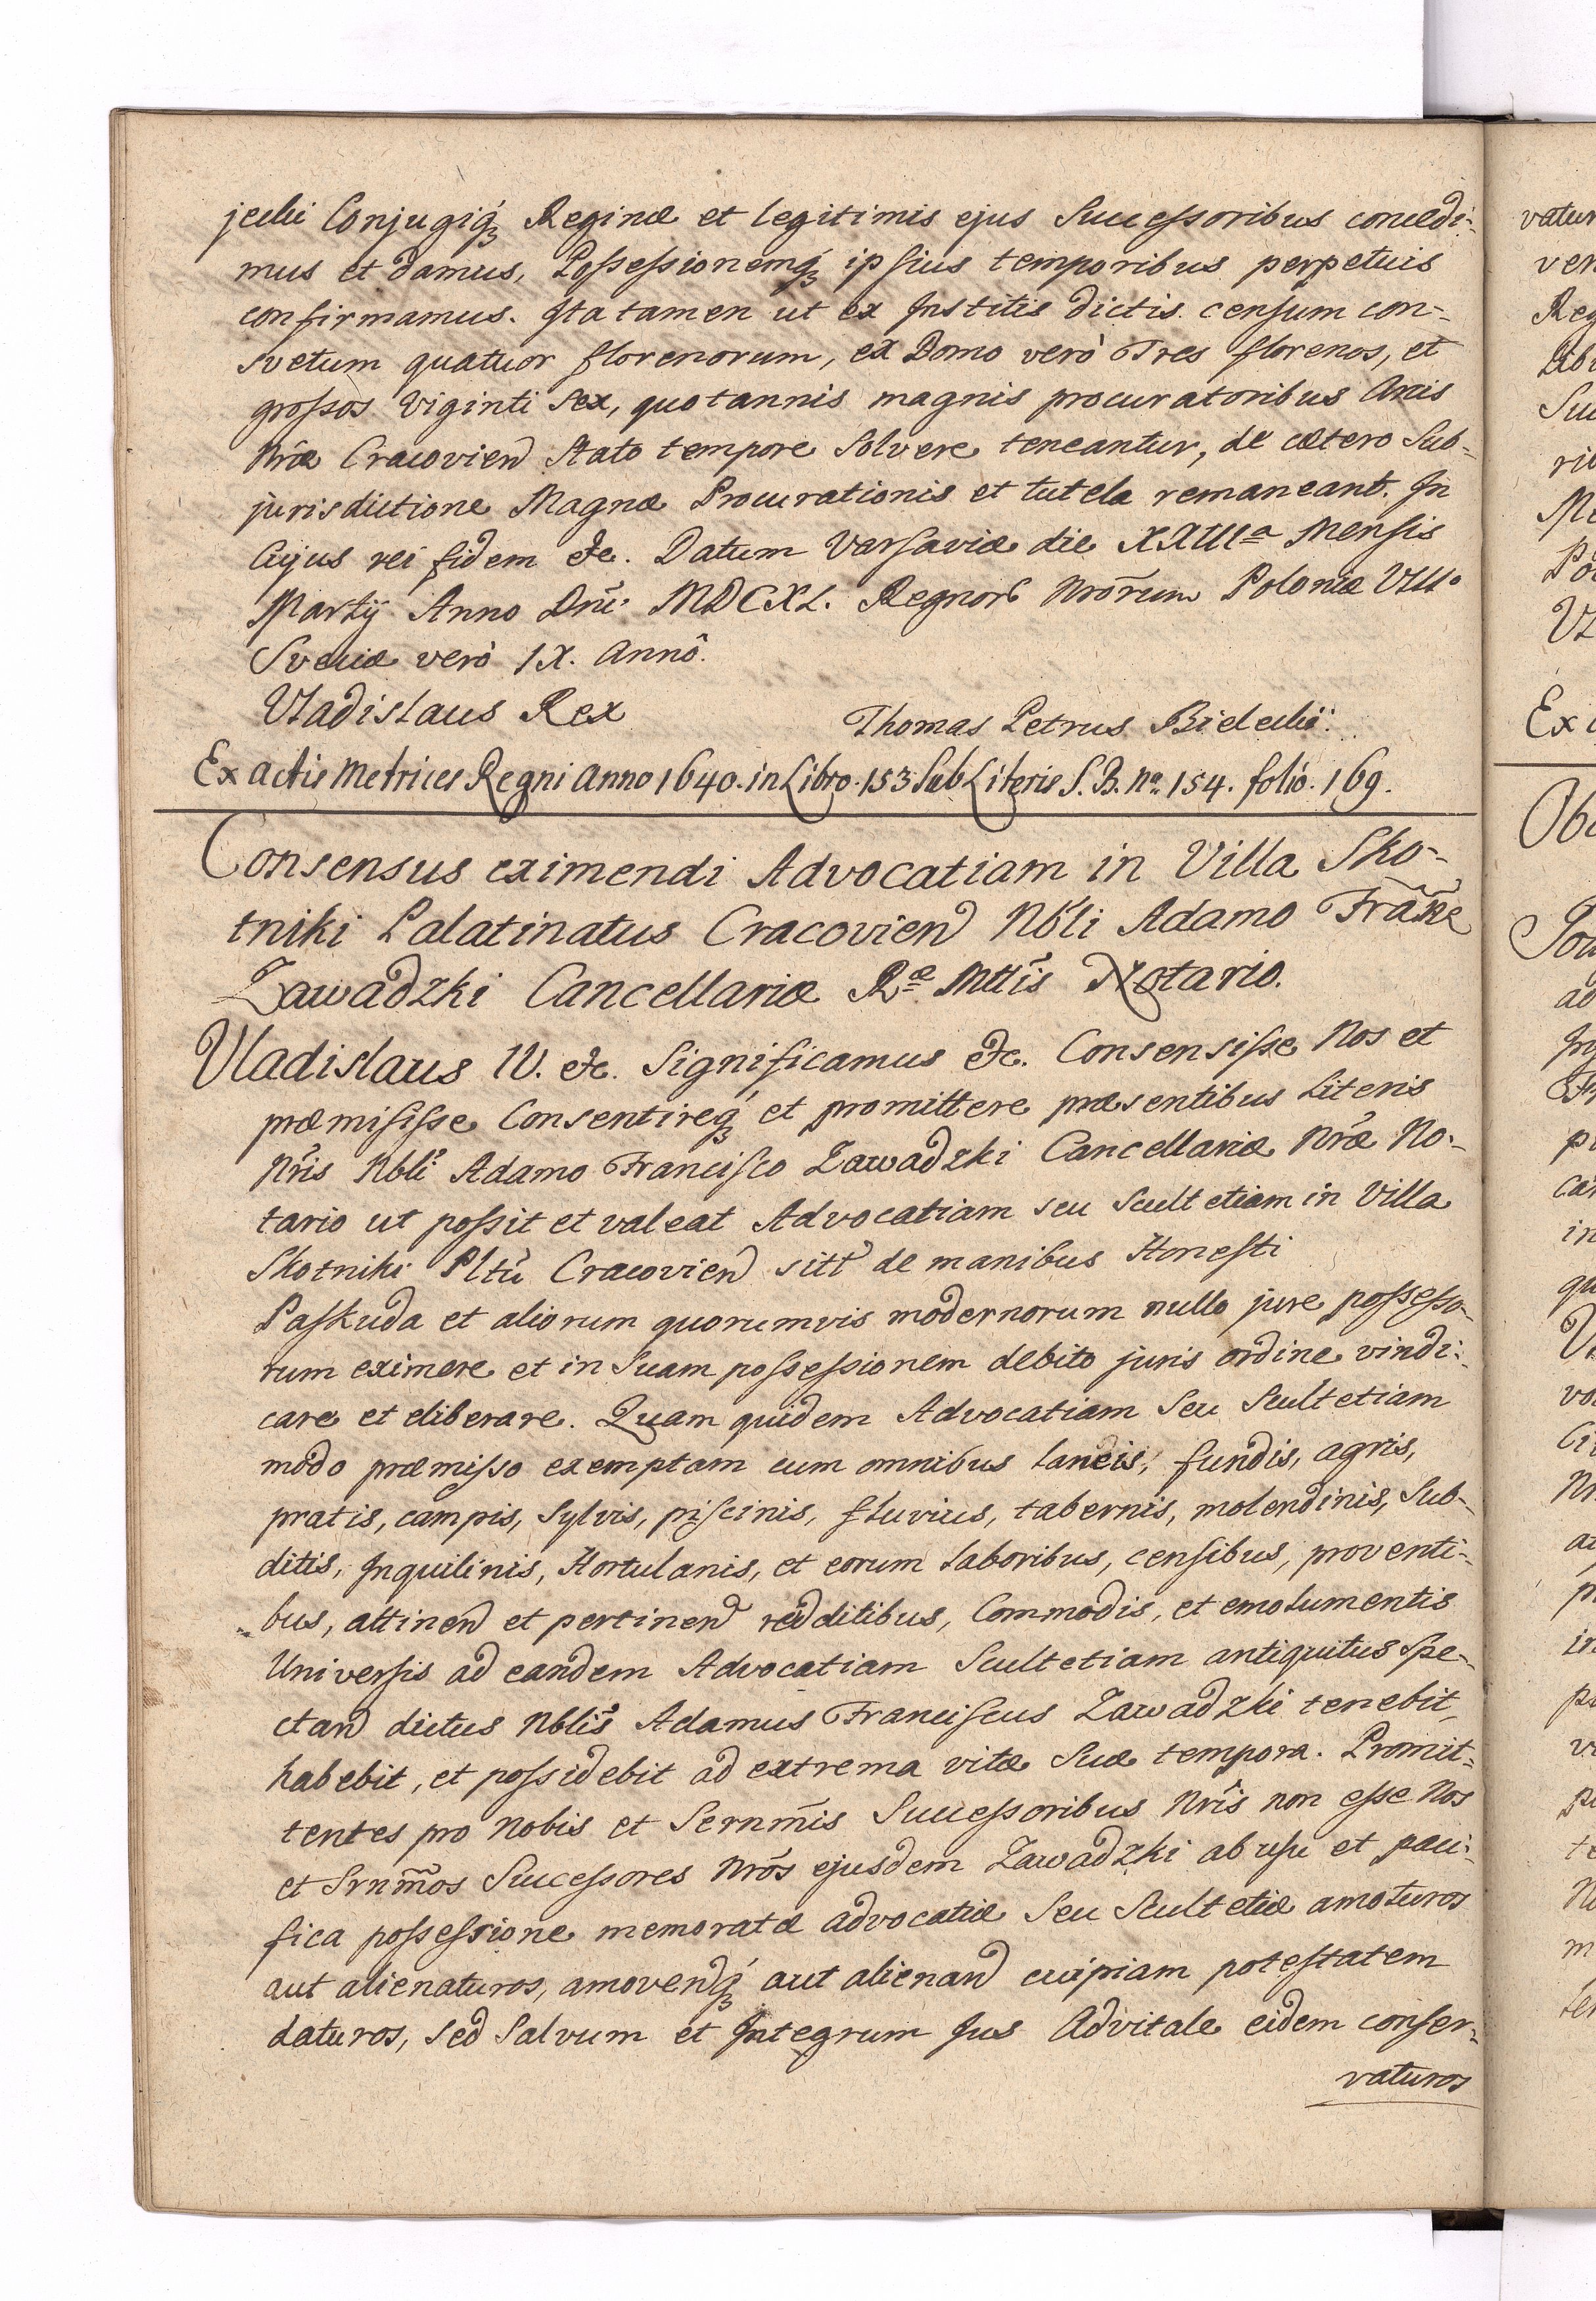 jecki Conjugiq́ꝫ Reginæ et legitimis ejus Successoribus concedi-
mus et damus, Possessionemq́ꝫ ipsius temporibus perpetuis
confirmamus. Ita tamen ut ex Institis dictis censum con-
svetum quatuor florenorum, ex Domo verò Tres florenos, et
grossos Viginti Sex, quotannis magnis procuratoribus Arcis
Nræ Cracovien Stato tempore Solvere teneantur, de cætero Sub-
jurisdictione Magnæ Procurationis et tutela remaneant. In
Cujus rei fidem &c. Datum Varsaviæ die XXIII=a Mensis
Martÿ Anno Dni MDCXL. Regnor Nrorum Poloniæ VIIIo
Sveciæ verò IX. Annô.
Vladislaus Rex
Thomas Petrus Bielecki
Ex actis Metrices Regni Anno 1640. in Libro. 153 Sub Literis S. B. No. 154. folio. 169.
Consensus eximendi Advocatiam in Villa Sko-
tniki Palatinatus Cracovien Nbli Adamo Franc
Zawadzki Cancellariæ Ræ Mttis Notario.
Vladislaus IV. &c. Significamus &c. Consensisse Nos et
præmisisse Consentireq́ꝫ et promittere præsentibus Literis
Nris Nbli Adamo Francisco Zawadzki Cancellariæ Nræ No-
tario ut possit et valeat Advocatiam seu Scultetiam in Villa
Skotniki Pltu Cracovien sitt de manibus Honesti
Paskuda et aliorum quorumvis modernorum nullo jure possesso-
rum eximere et in Suam possessionem debito juris ordine vindi-
care et eliberare. Quam quidem Advocatiam Seu Scultetiam
modo præmisso exemptam cum omnibus laneis, fundis, agris,
pratis, campis, Sylvis, piscinis, fluvius, tabernis, molendinis, Sub-
ditis, Inquilinis, Hortulanis, et eorum laboribus, censibus, proventi-
bus, attinen et pertinen redditibus, Commodis, et emolumentis
Universis ad eandem Advocatiam Scultetiam antiquitus Spe-
ctan dictus Nblis Adamus Franciscus Zawadzki tenebit,
habebit, et possidebit ad extrema vitæ Suæ tempora. Promit-
tentes pro Nobis et Sernmis Successoribus Nris non esse Nos
et Srnmos Successores Nros ejusdem Zawadzki ab usu et paci-
fica possessione memoratæ advocatiæ Seu Scultetiæ amoturos
aut alienaturos, amovendq́ꝫ aut alienand cuipiam potestatem
daturos, sed Salvum et Integrum Jus Advitale eidem conser-
vaturos